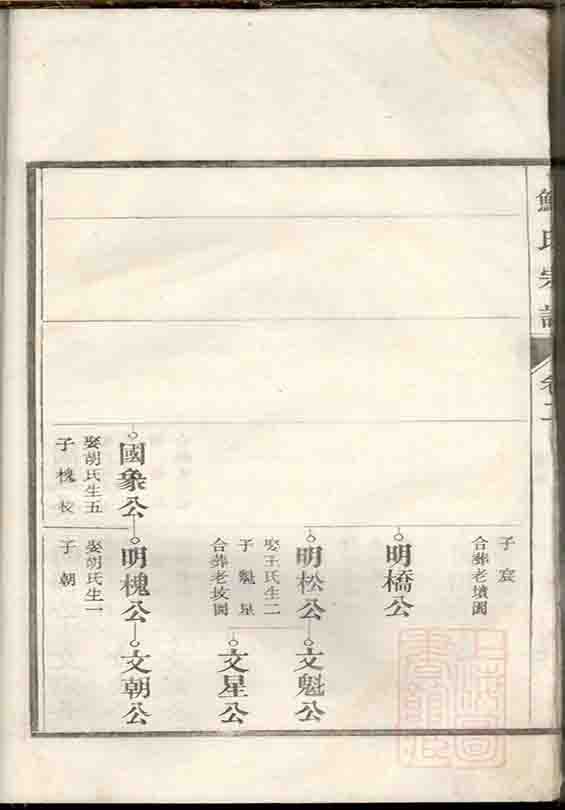 氏宗譜
卷二
子宸
合葬老墳園
明橋公
明松公
娶王氏生二
子魁星
合葬老坟園
文魁公
文星公
國象公
娶胡氏生五
子槐
明槐公
娶胡氏生一
子朝
文朝公
上海圖
書館藏